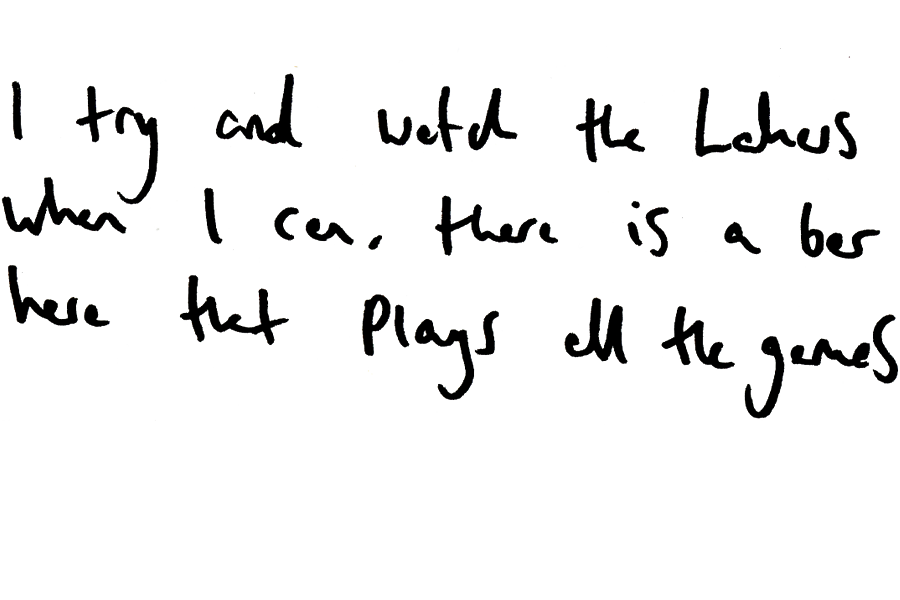 I try and watch the Lakers
when I can, there is a bar
here that plays all the games